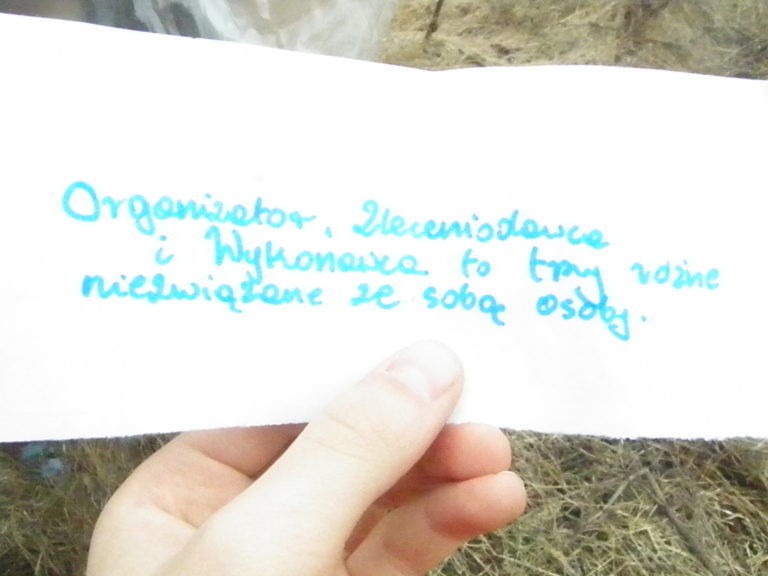 Organizator, Zleceniodawca
i Wykonawca to trzy różne
niezwiązane ze sobą osoby.